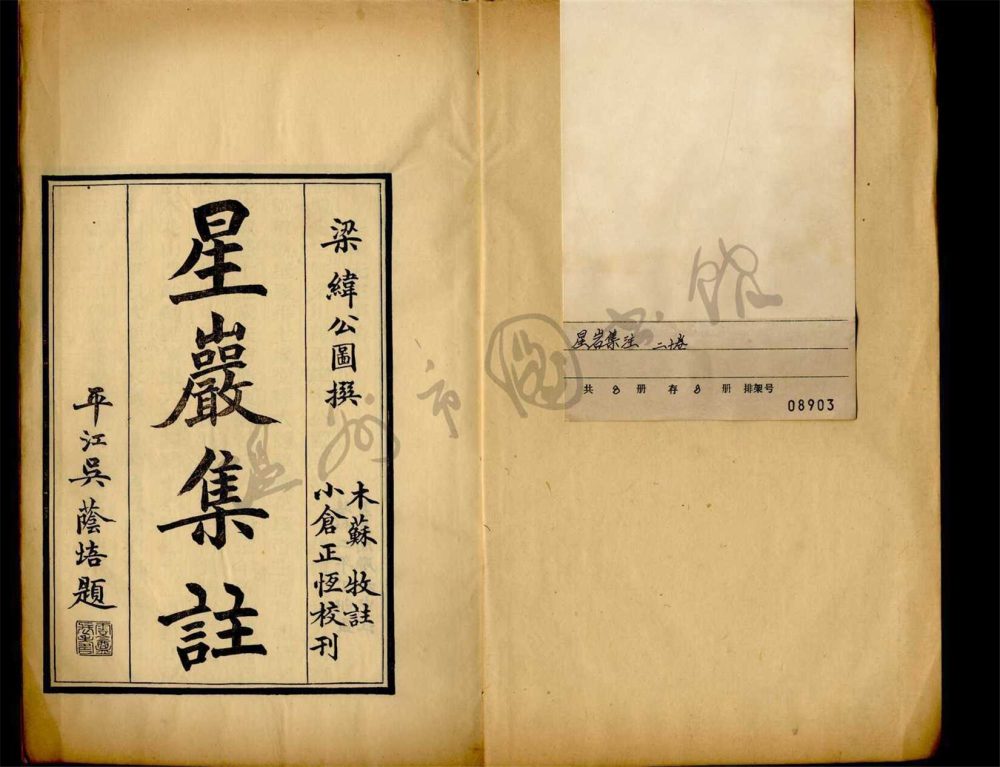 梁緯公圖撰
木蘇牧註
小倉正恆校刊
星巖集註
平江吳蔭培題
星岩集注 二十卷
共 8 册 存 8 册 排架号
08903